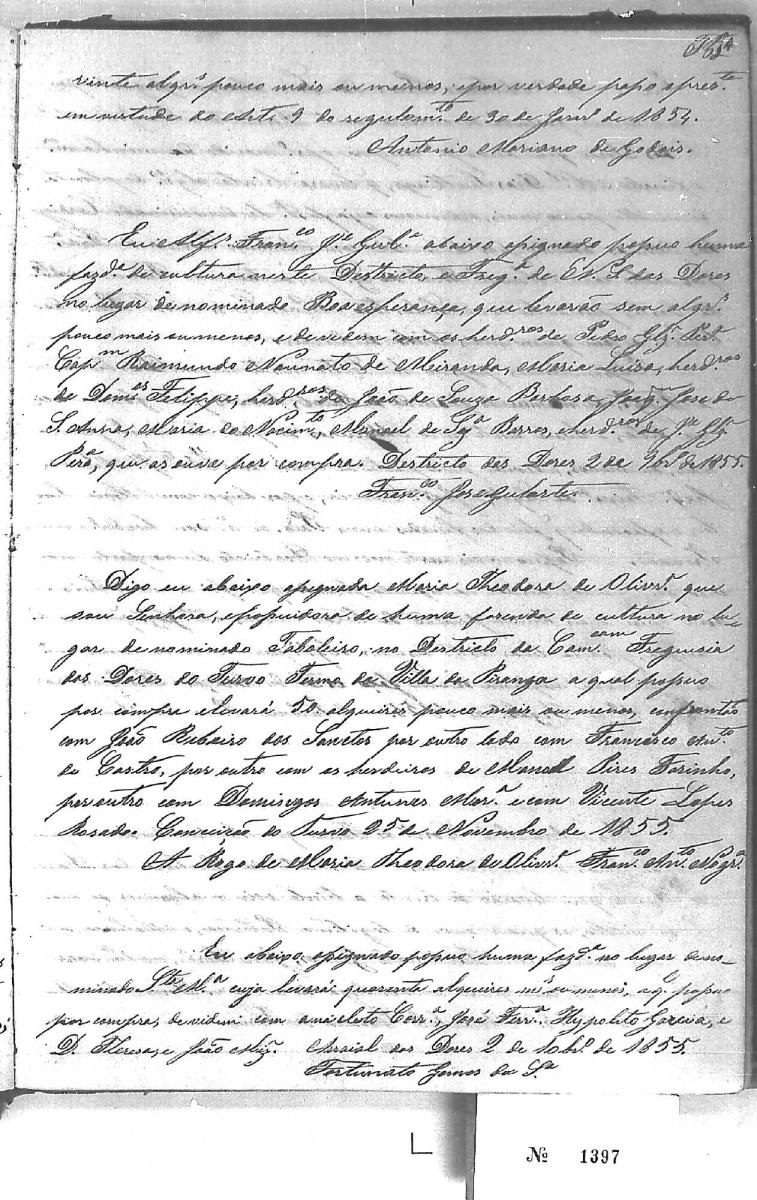 vinte alqrs pouco mais ou menos, epor verdade paço apreste
em virtude do Art. 9 do regulamto de 30 de Janro de 1854.
Antonio Mariano de Godois.
Eu Alfs Franco Je Gularte abaixo asignado posuo huma
fazda de cultura neste Destricto, e Frega de N. S. das Dores
no lugar denominado Boa esperança, que levarão sem alqrs
pouco mais ou menos, e devidem com os herdros de Pedro Glz Pera
Capm Raimundo Nonnato de Meiranda, Maria Luisa, herdros
de Domos Felippe, herdros de João de Souza Barbosa, Joaqm Jose de
S. Anna, Maria do Nacimto, Manoel de Barros, e herdros de Je Glz
Pera, que as ouve por compra. Destricto das Dores 2 de de 1855.
Franco Jose Gularte
Digo eu abaixo asignada Maria Theodora de Olivra que
sou Senhora, e posuidora de huma fazenda de cultura no lu-
gar denominado Taboleiro, no Destricto da Comcam Freguisia
das Dores do Turvo Termo da Villa da Piranga a qual posuo
por compra e levará 50 alqueires pouco mais ou menos, confrontão
com João Rubeiro dos Sanctos por outro lado com Francisco Anto
de Castro, por outro com os herdeiros de Manoel Pires Farinho,
por outro com Domingos Antunes Mora e com Vicente Lopes
Rosado. Conceição do Turvo 25 de Novembro de 1855.
A Rogo de Maria Theodora de Olivra Franco Anto
Eu abaixo asignado posuo huma fazda no lugar deno-
minado Sta Ma cuja levará quarenta alqueires ms ou menos, a q posuo
por compra, devidem com anacleto Corra, José Ferra Hypolito Garcia, e
D. Theresa, e João Miz. Arraial das Dores 2 de 10bro de 1855.
Fortunato Gomes da Sa
No 1397